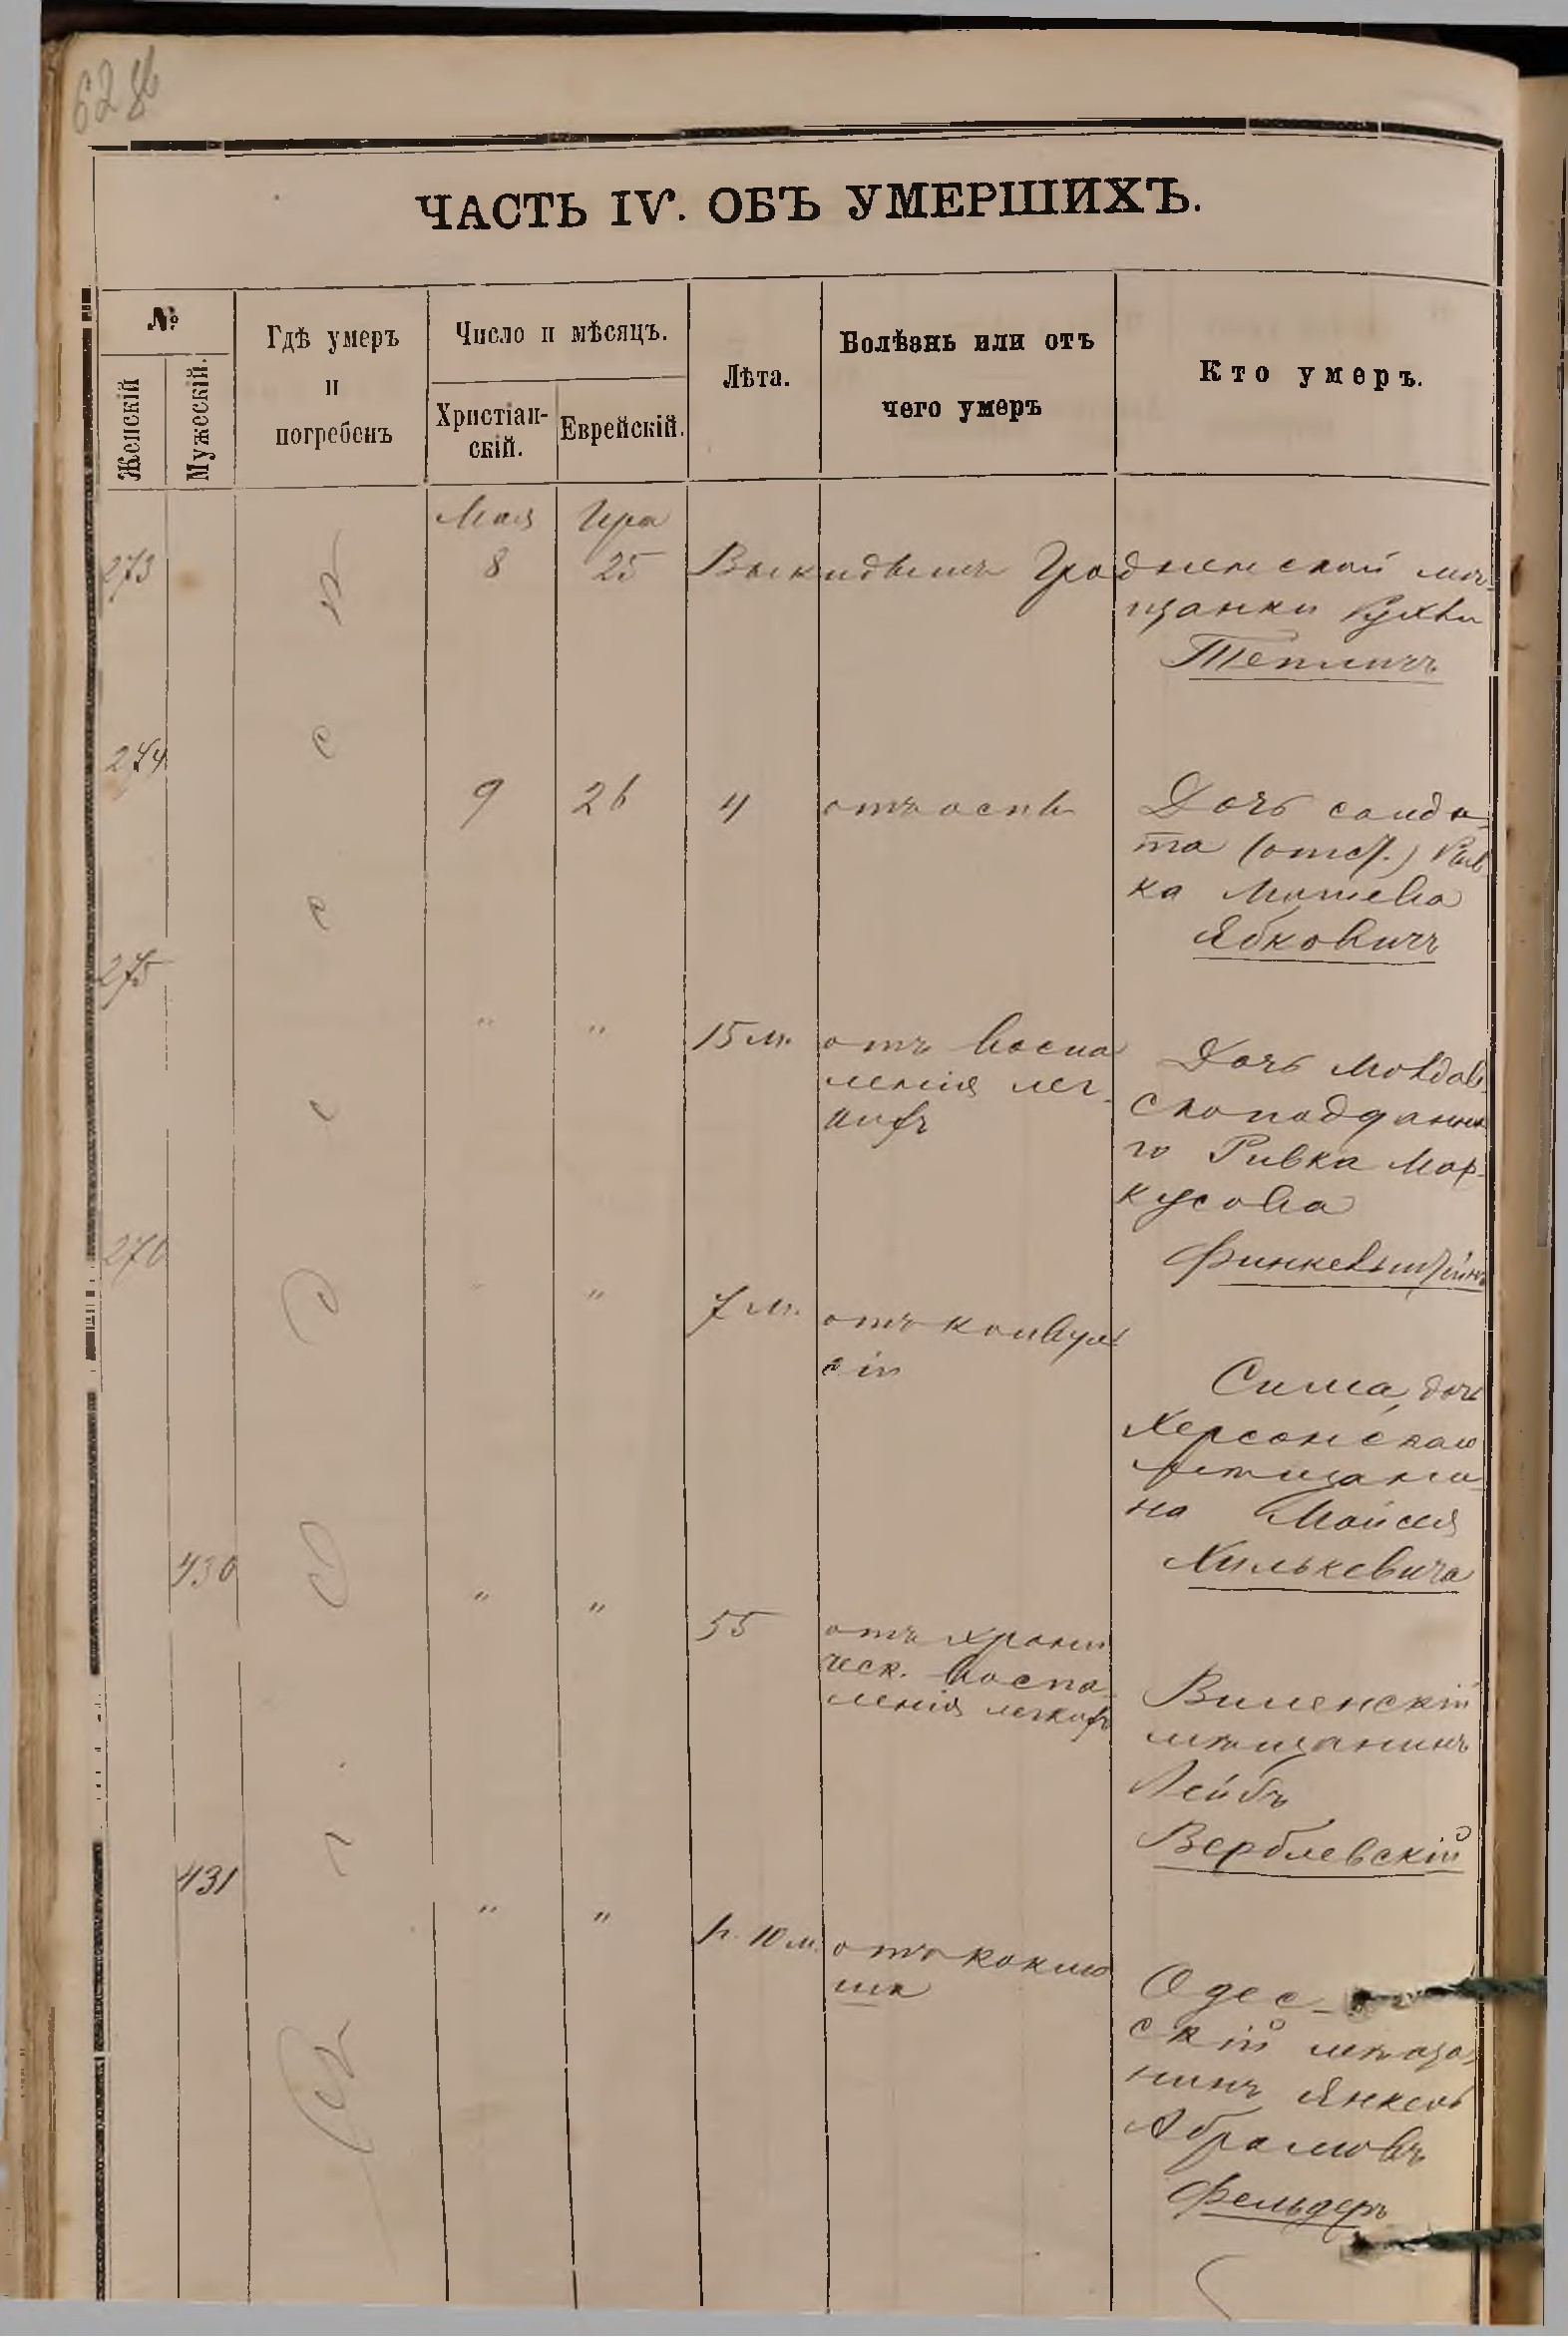 ЧАСТЬ IV. ОБЪ УМЕРШИХЪ.
№
Женскій
Мужескій.
Гдѣ умеръ
и
погребенъ
Число и мѣсяцъ.
Христіан-
скій.
Еврейскій.
Лѣта.
Болѣзнь или отъ
чего умеръ
Кто умеръ.
Мая Ира
273 8 25 Выкидышъ Гродненской мѣ-
щанки Рухли
Теплицъ
274
9 26 4 отъ оспы Дочь солда-
та (отст.) Рив
ка Мотева
Ябковичъ
275
" " 15 м. отъ воспа
ленія лег-
кихъ
Дочь Молдав.
скоподданна
го Ривка Мар-
кусова
Финкельштейнъ
276
" " 7 м. отъ конвуль
сіи
Сима, дочь
Херсонскаго
мѣщани
на Мойсея
Хилькевича
430
" " 55 отъ хрони
ческ. воспа
ленія легкихъ
Виленскій
мѣщанинъ
Лейбъ
Верблевскій
431
" " 10 м. отъ коклю
ша
Одес-
скій мѣща
нинъ Янкель
Абрамовъ
Фельдеръ
Одесса